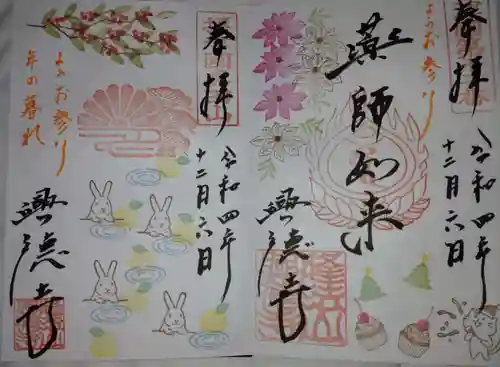 ようお参り
奉拝
令和四年
十二月六日
薬師如来
興徳寺
奉拝
令和四年
十二月六日
ようお参り
年の暮れ
興徳寺